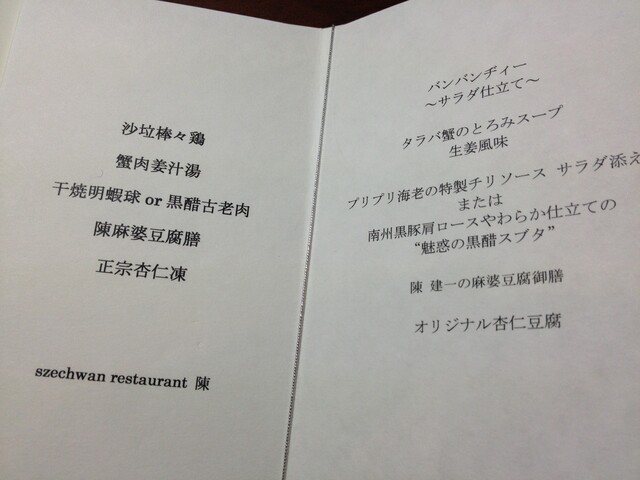 沙垃棒々鶏
蟹肉姜汁湯
干焼明蝦球 or 黒醋古老肉
陳麻婆豆腐膳
正宗杏仁凍
szechwan restaurant 陳
バンバンヂィー
～サラダ仕立て～
タラバ蟹のとろみスープ
生姜風味
プリプリ海老の特製チリソース サラダ添え
または
南州黒豚肩ロースやわらか仕立ての
“魅惑の黒醋スブタ”
陳 建一の麻婆豆腐御膳
オリジナル杏仁豆腐